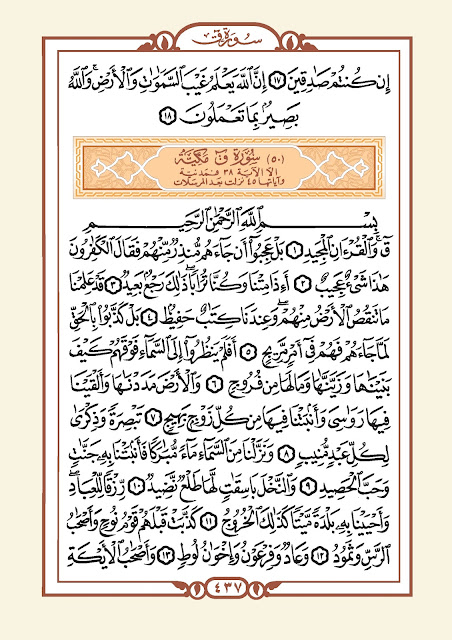 سورة ق
إِن كُنتُمْ صَادِقِينَ ١٧ إِنَّ اللَّهَ يَعْلَمُ غَيْبَ السَّمَٰوَٰتِ وَالْأَرْضِ ۚ وَاللَّهُ
بَصِيرٌ بِمَا تَعْمَلُونَ ١٨
(٥٠) سُورَة ق مَكيَّة
الا الآية ٣٨ فمدنية
وآياتها ٤٥ نزلت بعد المرسلات
بِسْمِ اللَّهِ الرَّحْمَٰنِ الرَّحِيمِ
ق ۚ وَالْقُرْءَانِ الْمَجِيدِ ١ بَلْ عَجِبُوٓا أَن جَآءَهُم مُّنذِرٌ مِّنْهُمْ فَقَالَ الْكَٰفِرُونَ
هَٰذَا شَىْءٌ عَجِيبٌ ٢ أَءِذَا مِتْنَا وَكُنَّا تُرَابًا ۖ ذَٰلِكَ رَجْعٌۢ بَعِيدٌ ٣ قَدْ عَلِمْنَا
مَا تَنقُصُ الْأَرْضُ مِنْهُمْ ۖ وَعِندَنَا كِتَٰبٌ حَفِيظٌۢ ٤ بَلْ كَذَّبُوا بِالْحَقِّ
لَمَّا جَآءَهُمْ فَهُمْ فِىٓ أَمْرٍ مَّرِيجٍ ٥ أَفَلَمْ يَنظُرُوٓا إِلَى السَّمَآءِ فَوْقَهُمْ كَيْفَ
بَنَيْنَٰهَا وَزَيَّنَّٰهَا وَمَا لَهَا مِن فُرُوجٍ ٦ وَالْأَرْضَ مَدَدْنَٰهَا وَأَلْقَيْنَا
فِيهَا رَوَٰسِىَ وَأَنۢبَتْنَا فِيهَا مِن كُلِّ زَوْجٍۭ بَهِيجٍ ٧ تَبْصِرَةً وَذِكْرَىٰ
لِكُلِّ عَبْدٍ مُّنِيبٍ ٨ وَنَزَّلْنَا مِنَ السَّمَآءِ مَآءً مُّبَٰرَكًا فَأَنۢبَتْنَا بِهِۦ جَنَّٰتٍ
وَحَبَّ الْحَصِيدِ ٩ وَالنَّخْلَ بَاسِقَٰتٍ لَّهَا طَلْعٌ نَّضِيدٌ ١٠ رِّزْقًا لِّلْعِبَادِ ۖ
وَأَحْيَيْنَا بِهِۦ بَلْدَةً مَّيْتًا ۚ كَذَٰلِكَ الْخُرُوجُ ١١ كَذَّبَتْ قَبْلَهُمْ قَوْمُ نُوحٍ وَأَصْحَٰبُ
الرَّسِّ وَثَمُودُ ١٢ وَعَادٌ وَفِرْعَوْنُ وَإِخْوَٰنُ لُوطٍ ١٣ وَأَصْحَٰبُ الْأَيْكَةِ
٤٣٧